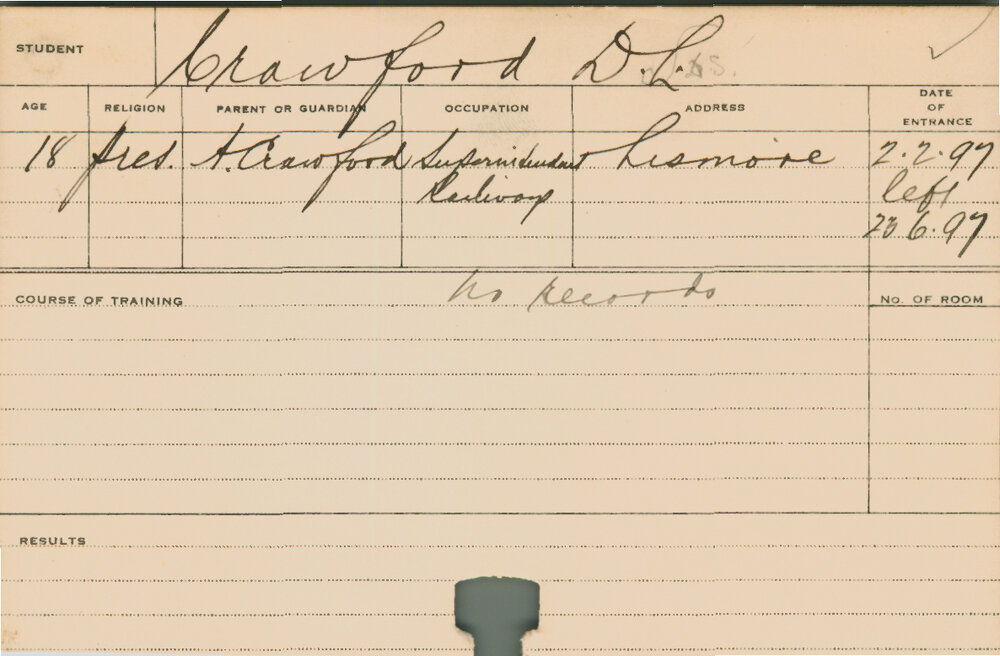 STUDENT Crawford D.L.
AGE RELIGION PARENT OR GUARDIAN OCCUPATION ADDRESS DATE OF ENTRANCE
18 Pres. A. Crawford Superintendent Lismore 2.2.97
Railway left
23.6.97
COURSE OF TRAINING No records No. OF ROOM
RESULTS